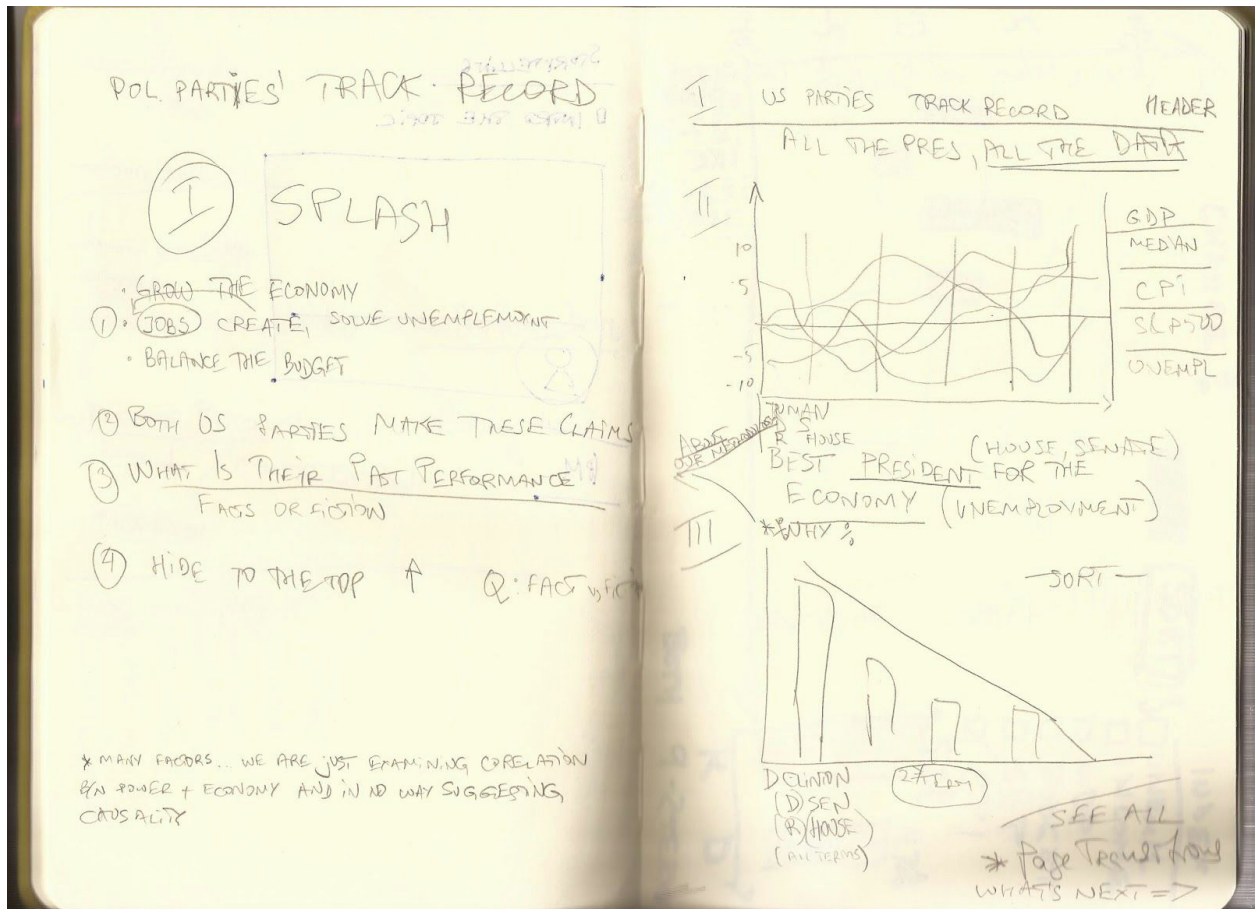 POL. PARTIES' TRACK RECORD
I SPLASH
· GROW THE ECONOMY
① · JOBS CREATE, SOLVE UNEMPLEMOYNT
· BALANCE THE BUDGET
② BOTH US PARTIES MAKE THESE CLAIMS
③ WHAT IS THEIR PAST PERFORMANCE
FACTS OR FICTION
④ HIDE TO THE TOP ↑ Q: FACT vs
* MANY FACTORS... WE ARE JUST EXAMINING CORELATION
B/N POWER + ECONOMY AND IN NO WAY SUGGESTING
CAUSALITY
I US PARTIES TRACK RECORD HEADER
ALL THE PRES, ALL THE DATA
II
10
5
-5
-10
GDP
MEDIAN
CPI
S&P500
UNEMPL
TUMAN
D S
R HOUSE
ABOUT
OUR
(HOUSE, SENATE)
BEST PRESIDENT FOR THE
ECONOMY (UNEMPLOYMENT)
III
WHY %
-SORT-
D CLINTON
(D) SEN
(R) HOUSE
(ALL TERMS)
SEE ALL
* Page Transitions
WHAT'S NEXT =>